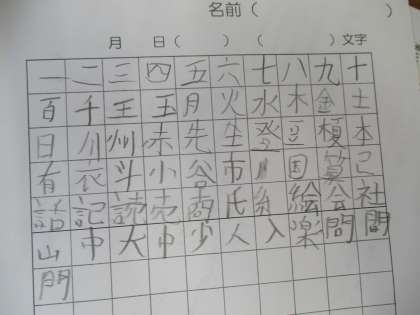 名前(　　　)
月　日(　　)　(　　　)文字
一二三四五六七八九十
百千王玉月火水木金土
日川州赤先生登豆榎本
有衣斗小谷市月回算己
話記読売商氏糸絵会社
山中大中少人入楽問間
門